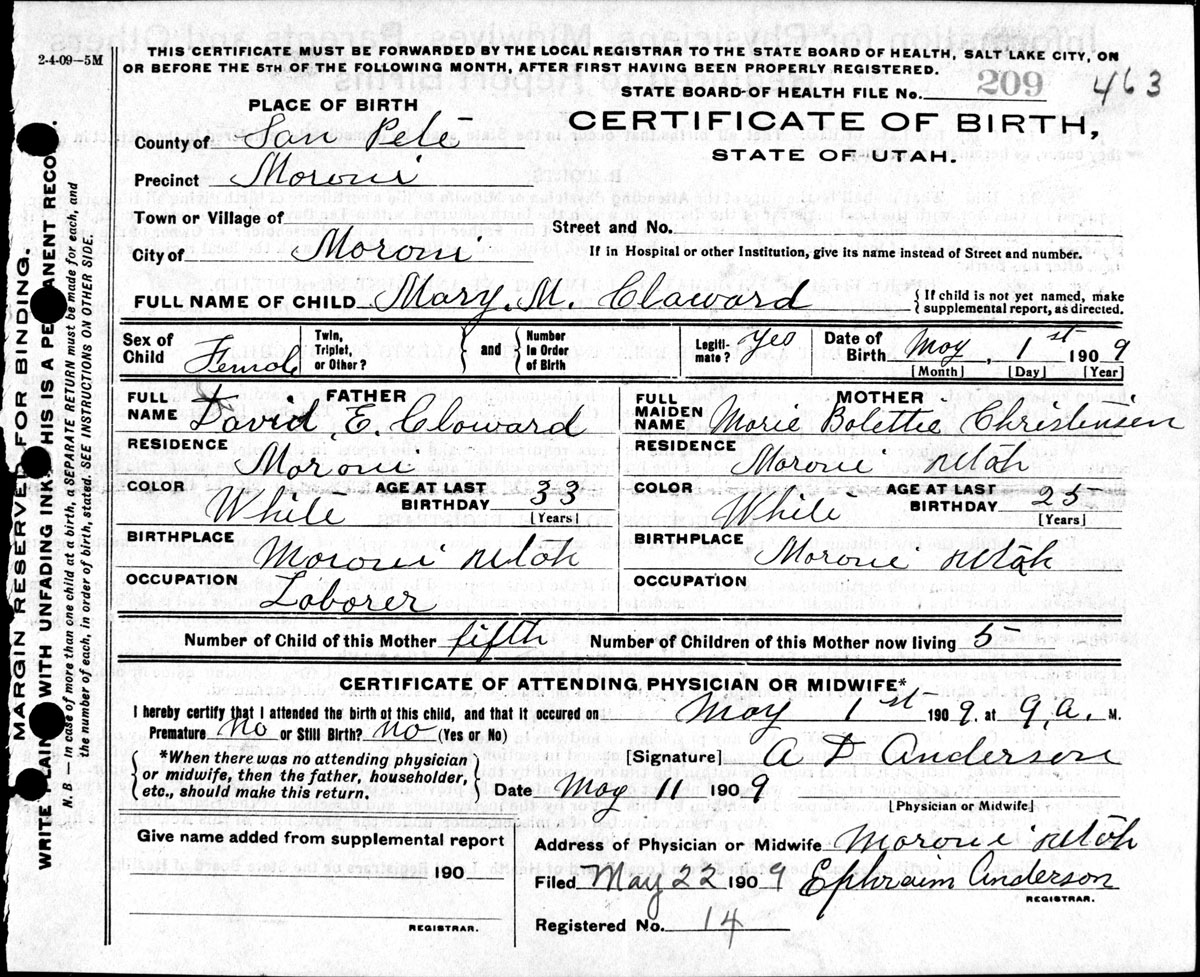 2-4-09—5M
THIS CERTIFICATE MUST BE FORWARDED BY THE LOCAL REGISTRAR TO THE STATE BOARD OF HEALTH, SALT LAKE CITY, ON
OR BEFORE THE 5TH OF THE FOLLOWING MONTH, AFTER FIRST HAVING BEEN PROPERLY REGISTERED.
STATE BOARD OF HEALTH FILE No. 209 463
PLACE OF BIRTH
CERTIFICATE OF BIRTH,
STATE OF UTAH.
County of San Pete
Precinct Moroni
Town or Village of
Street and No.
City of Moroni
If in Hospital or other Institution, give its name instead of Street and number.
FULL NAME OF CHILD Mary. M. Claward
{ If child is not yet named, make
supplemental report, as directed.
Sex of Child Female
Twin, Triplet, or Other?
} and {
Number in Order of Birth
Legiti- mate? Yes
Date of Birth May, 1st 1909
[Month] [Day] [Year]
FATHER
FULL NAME David E. Cloward
RESIDENCE Moroni
COLOR White AGE AT LAST BIRTHDAY 33
[Years]
BIRTHPLACE Moroni Utah
OCCUPATION Laborer
MOTHER
FULL MAIDEN NAME Marie Bolettie Christensen
RESIDENCE Moroni Utah
COLOR White AGE AT LAST BIRTHDAY 25
[Years]
BIRTHPLACE Moroni Utah
OCCUPATION
Number of Child of this Mother fifth Number of Children of this Mother now living 5
CERTIFICATE OF ATTENDING PHYSICIAN OR MIDWIFE*
I hereby certify that I attended the birth of this child, and that it occured on May 1st 1909. at 9, a. M.
Premature No or Still Birth? No (Yes or No)
{ *When there was no attending physician
or midwife, then the father, householder,
etc., should make this return. }
[Signature] A D Anderson
Date May 11 1909
[Physician or Midwife.]
Give name added from supplemental report
190
REGISTRAR.
Address of Physician or Midwife Moroni Utah
Filed May 22 1909 Ephraim Anderson
REGISTRAR.
Registered No. 14
MARGIN RESERVED FOR BINDING.
WRITE PLAIN WITH UNFADING INK THIS IS A PE ANENT RECO
N. B.—In case of more than one child at a birth, a SEPARATE RETURN must be made for each, and
the number of each, in order of birth, stated. SEE INSTRUCTIONS ON OTHER SIDE.